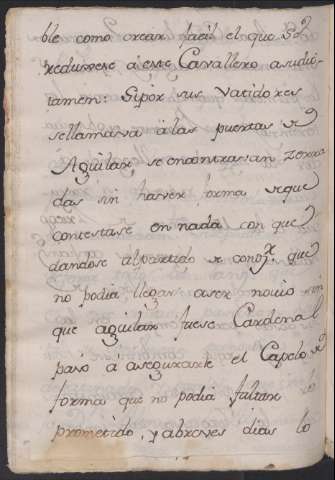 ble como creia facil el que S.M.
reduxese á este Cavallero a su dic-
tamen: Si por sus Vatidores
se llamava á las puertas de
Aguilar, se encontravan zerra
das sin haver forma de que
contestase en nada con que
dandose al partido de que
no podia llegar a ser novio
que aguilar fuese Cardenal
pasó á asegurarle el Capelo de
forma que no podia faltar lo
prometido, y a breves dias lo